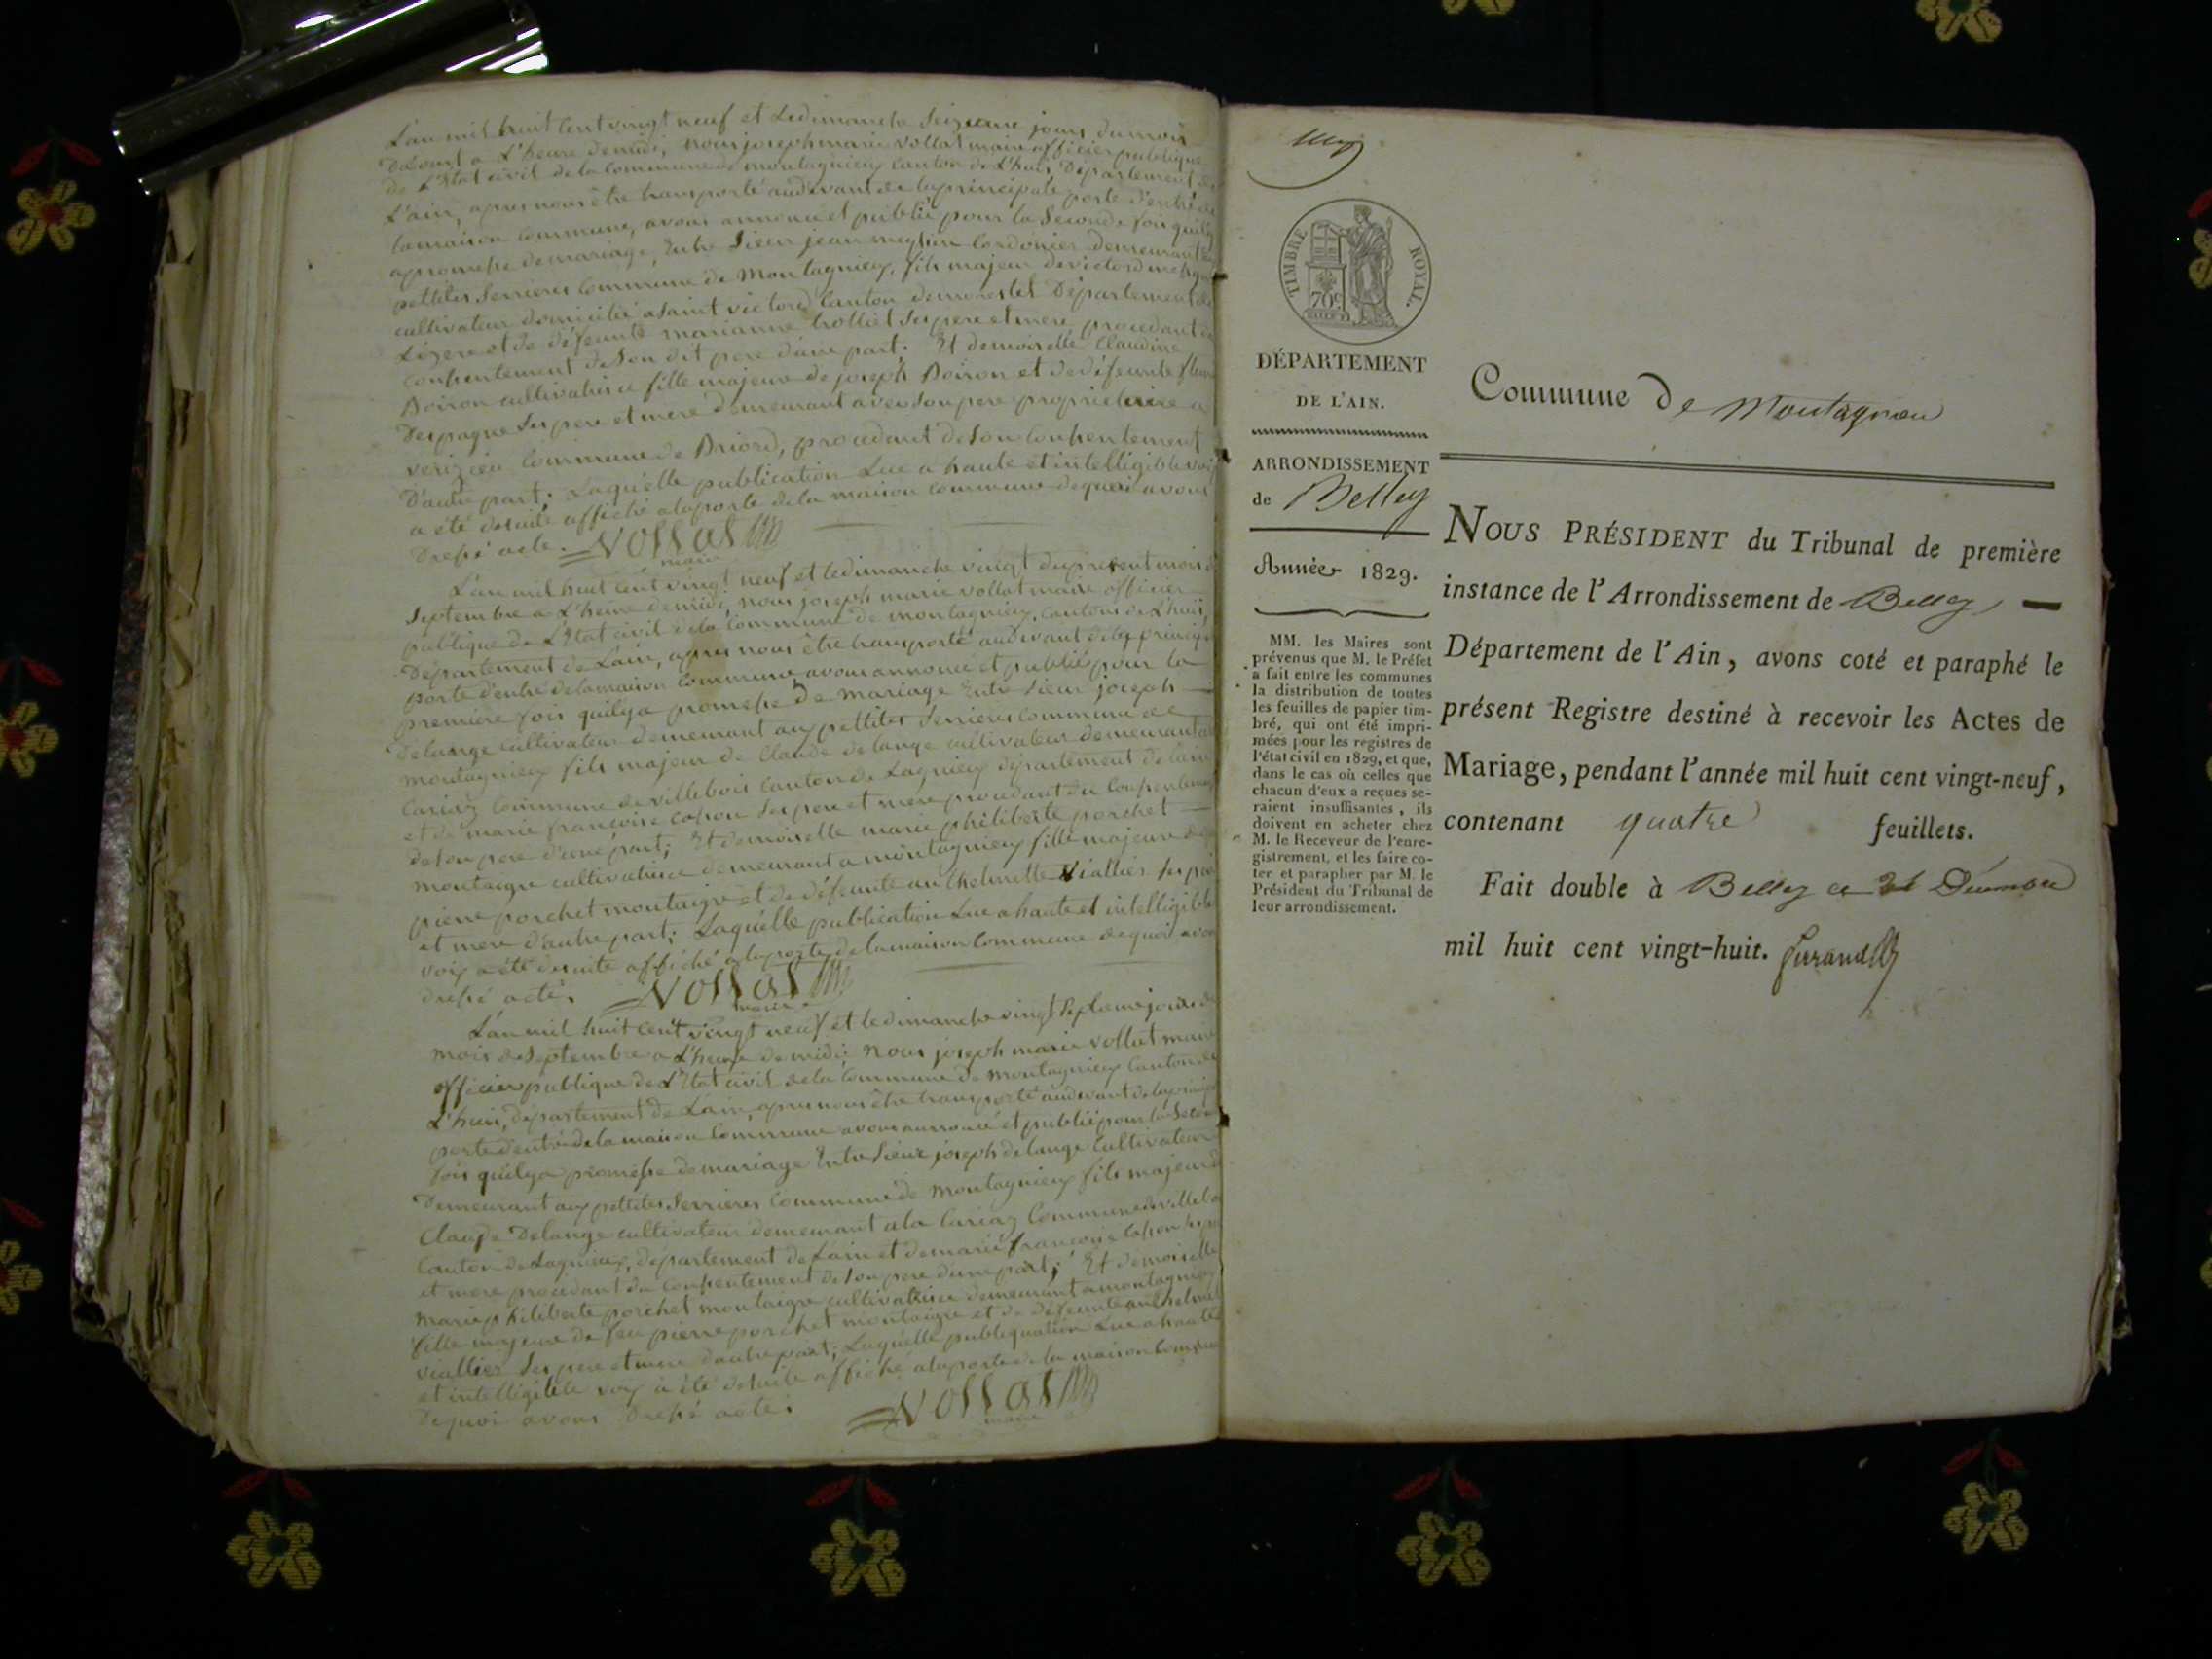 L'an mil huit cent vingt neuf et le dimanche seizieme jours du mois
Daoust a L'heure de midi, nous joseph marie vollat maire officier publique
de L'Etat civil de la Commune de montagnieux Canton de L'huis, Département de
L'ain, apres nous être transporté au devant de la principale porte d'entré de
la maison Commune, avons annoncé et publié pour la Seconde fois quil y
a promesse de mariage, Entre Sieur jean Cordonier demeurant aux
pettites Serrieres Commune de Montagnieux, fils majeur de victord
cultivateur domicilié a saint victord Canton de morestel Département de
Lizere et de défeunte marianne trolliet ses pere et mere procedant du
consentement de Son dit pere d'une part. Et demoiselle Claudine
Boiron cultivatrice fille majeure de joseph Boiron et de défeunte
Despagne Ses pere et mere demeurant avec son pere proprietaire a
verizieu Commune de Briord, procedant de Son Consentement
D'autre part; Laquelle publication Lue a haute et intelligible voix
a été desuite affiché a la porte de la maison Commune de quoi avons
Dressé acte. Vollat
maire
L'an mil huit cent vingt neuf et le dimanche vingt du present mois de
Septembre a L'heure de midi, nous joseph marie vollat maire officier
publique de L'Etat civil de la Commune de montagnieux, Cantons de L'huis,
Département de L'ain, apres nous être transporté au devant de la principale
porte d'entré de la maison Commune avons annoncé et publié pour la
premiere fois quil y a promesse de mariage Entre Sieur joseph
Delange Cultivateur demeurant aux pettites Serrieres Commune de
montagnieux fils majeur de Claude delange cultivateur demeurant a
Lariaz Commune de villebois Canton de Lagnieux département de L'ain
et de marie francoise capon Ses pere et mere procedant du Consentement
de Son pere d'une part; Et demoiselle marie philiberte porchet
montaigre cultivatrice demeurant a montagnieux fille majeure de
pierre porchet montaigre et de défeunte anthelmette Viallier Ses pere
et mere d'autre part; Laquelle publication Lue a haute et intelligible
voix a été desuite affiché a la porte de la maison Commune de quoi avons
dressé acte. Vollat
maire
L'an mil huit cent vingt neuf et le dimanche vingt Septieme jours du
mois de Septembre a L'heure de midi; Nous joseph marie vollat maire
officier publique de L'Etat civil de la Commune de montagnieux Canton de
L'huis, département de L'ain, apres nous être transporté au devant de la principale
porte d'entré de la maison Commune avons annoncé et publié pour la Seconde
fois quil y a promesse de mariage Entre Sieur joseph delange Cultivateur
Demeurant aux pettites Serrieres Commune de montagnieux fils majeur de
Claude Delange cultivateur demeurant a la Lariaz Commune de villebois
Canton de Lagnieux, département de L'ain et de marie francoise Capon Ses pere
et mere procedant du Consentement de Son pere d'une part; Et demoiselle
marie philiberte porchet montaigre cultivatrice demeurant a montagnieux
fille majeure de feu pierre porchet montaigre et de défeunte anthelmette
viallier Ses pere et mere d'autre part; Laquelle publiquation Lue a haute
et intelligible voix a été desuite affiché a la porte de la maison Commune
De quoi avons Dressé acte; Vollat
maire
TIMBRE ROYAL.
70c
DÉPARTEMENT
DE L'AIN.
ARRONDISSEMENT
de Belley
Année 1829.
MM. les Maires sont
prévenus que M. le Préfet
a fait entre les communes
la distribution de toutes
les feuilles de papier tim-
bré, qui ont été impri-
mées pour les registres de
l'état civil en 1829, et que,
dans le cas où celles que
chacun d'eux a reçues se-
raient insuffisantes, ils
doivent en acheter chez
M. le Receveur de l'enre-
gistrement, et les faire co-
ter et parapher par M. le
Président du Tribunal de
leur arrondissement.
Commune De Montagnieu
NOUS PRÉSIDENT du Tribunal de première
instance de l'Arrondissement de Belley
Département de l'Ain, avons coté et paraphé le
présent Registre destiné à recevoir les Actes de
Mariage, pendant l'année mil huit cent vingt-neuf,
contenant quatre feuillets.
Fait double à Belley ce Décembre
mil huit cent vingt-huit.